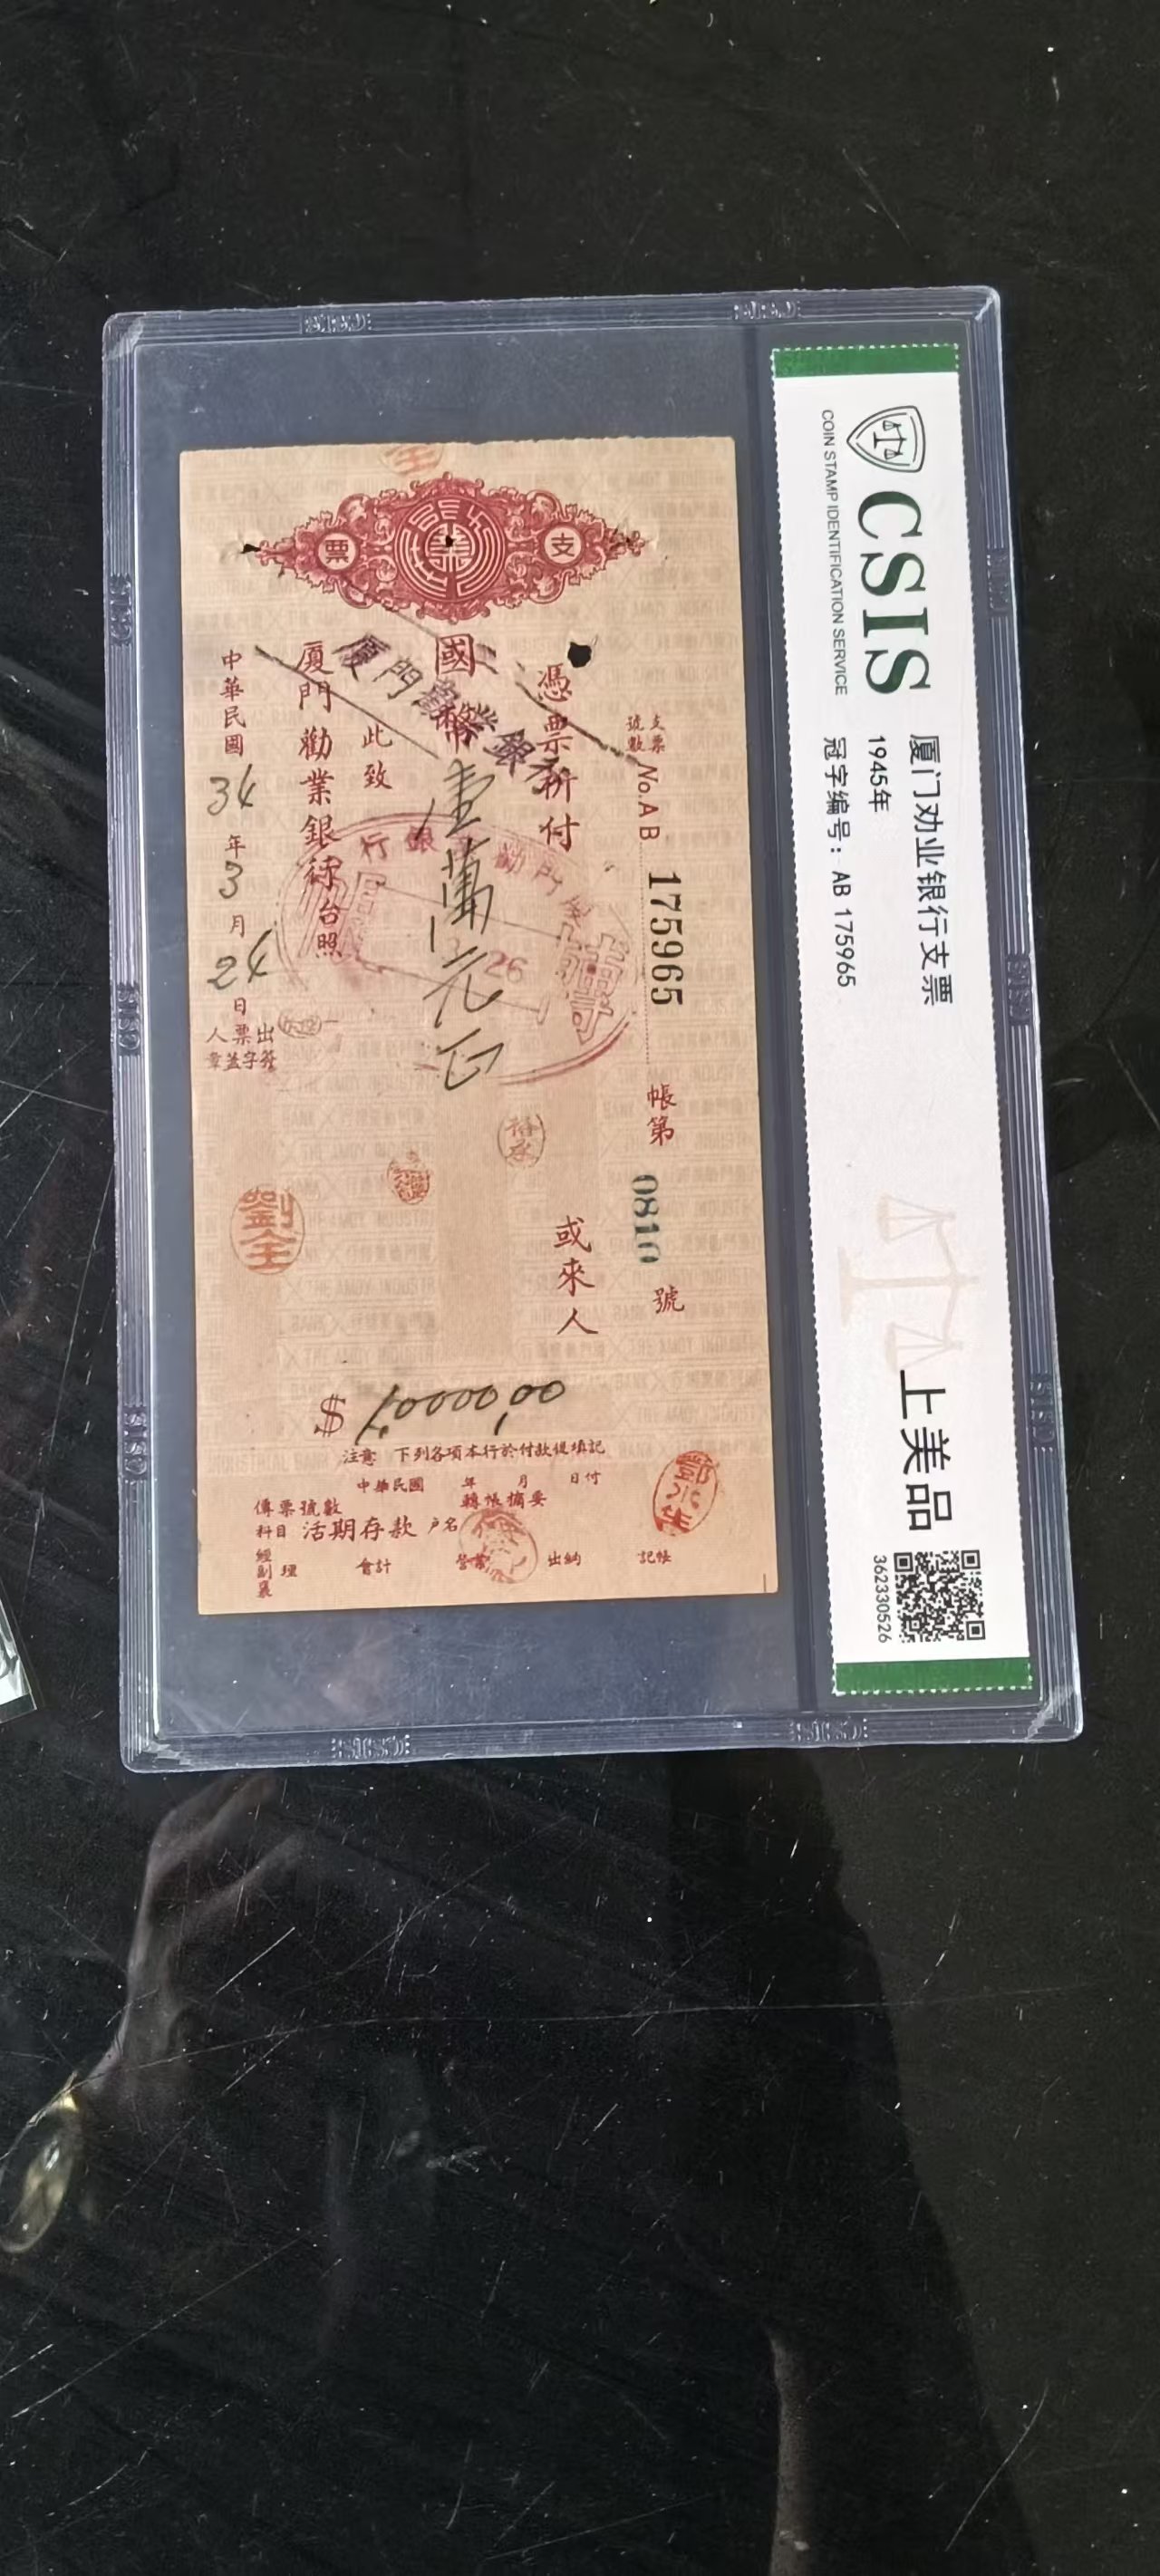 支票
憑票祈付
國幣
壹萬元正
此致
廈門勸業銀行台照
廈門勸業銀行
中華民國34年3月24日
出票人
簽字蓋章
支票
號數
No.AB 175965
帳第 0810 號
或來人
26
劉全
$ 10000.00
注意 下列各項本行於付款後填記
中華民國 年 月 日付
傳票號數 轉帳摘要
科目 活期存款 户名
經副襄 理 會計 營業 出納 記帳
CSIS
COIN STAMP IDENTIFICATION SERVICE
厦门劝业银行支票
1945年
冠字编号：AB 175965
上美品
362330526